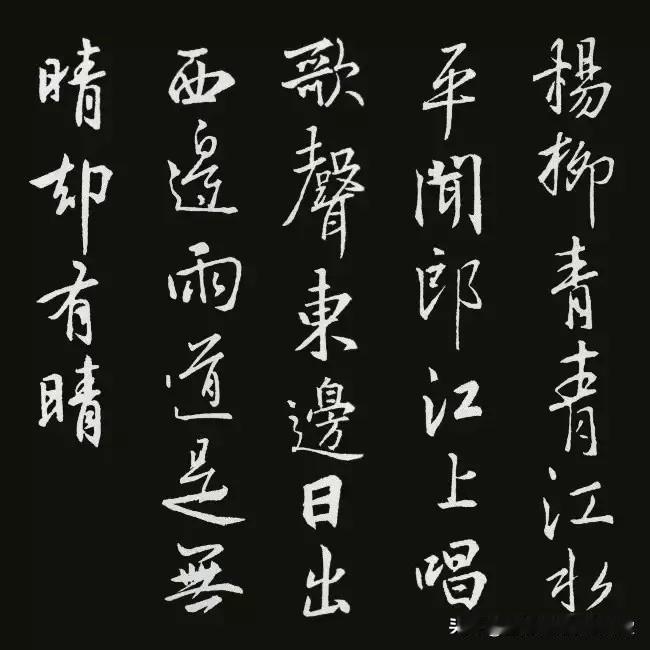 楊柳青青江水
平聞郎江上唱
歌聲東邊日出
西邊雨道是無
晴却有晴
头